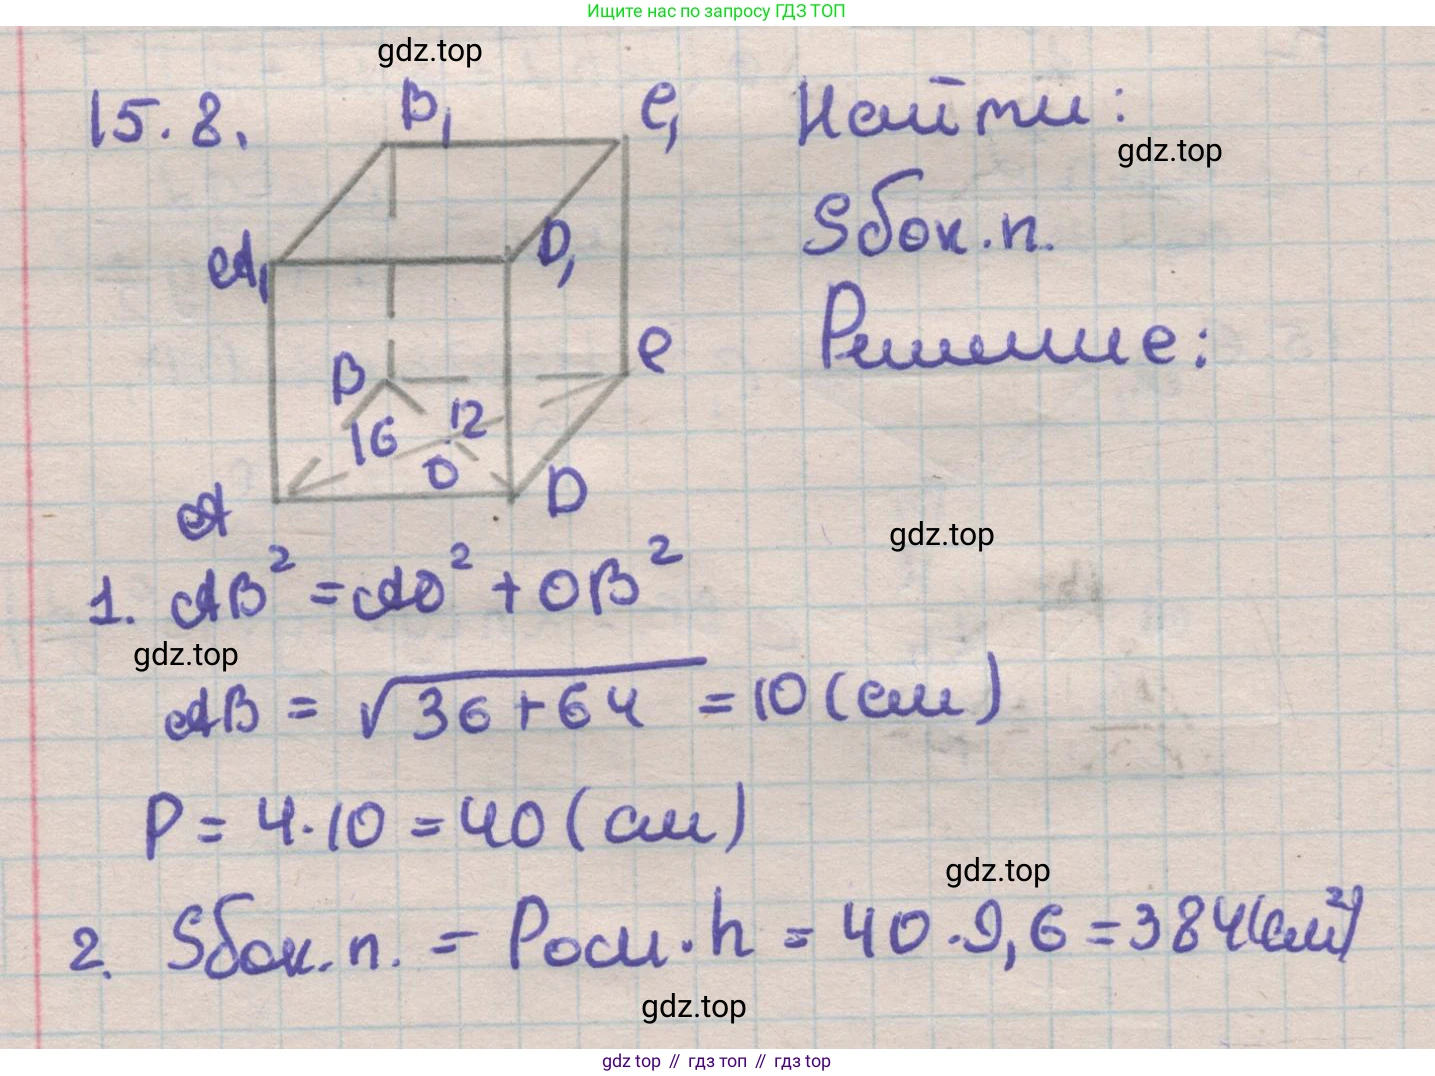 Ищите нас по запросу ГДЗ ТОП
gdz.top
15.8.
B₁
C₁
Найти:
gdz.top
A₁
D₁
Sбок.п.
B
C
Решение:
16
12
O
A
D
gdz.top
1. AB² = AO² + OB²
gdz.top
AB = √36+64 = 10 (см)
P = 4·10 = 40 (см)
gdz.top
2. Sбок.п. = Pосн·h = 40·9,6 = 384(см²)
gdz.top
gdz top // гдз топ // гдз top